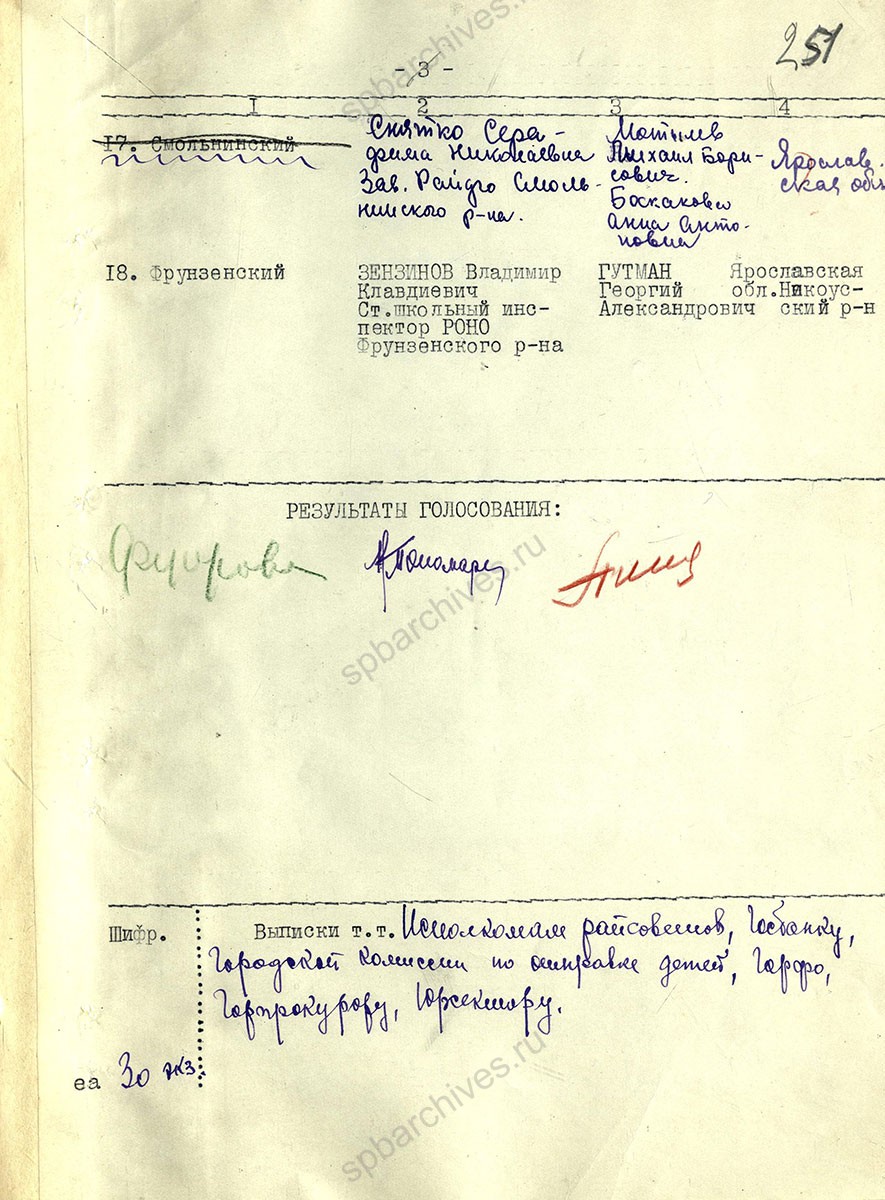 251
- 3 -
1 2 3 4
17. Смольнинский
Снятко Сера-
фима Николаевна
Зав. Райдго Смоль-
нинского р-на.
Мотылев
Михаил Бори-
сович.
Баскакова
Анна Анто-
новна
Ярослав.
ская обл
18. Фрунзенский
ЗЕНЗИНОВ Владимир
Клавдиевич
Ст.школьный инс-
пектор РОНО
Фрунзенского р-на
ГУТМАН
Георгий
Александрович
Ярославская
обл.Никоус-
ский р-н
РЕЗУЛЬТАТЫ ГОЛОСОВАНИЯ:
Шифр.
Выписки т.т. Исполкомам райсоветов, Госбанку,
Городской комиссии по отправке детей, Горфо,
Горпрокурору, Юрсектору.
еа 30 экз.
spbarchives.ru
spbarchives.ru
spbarchives.ru